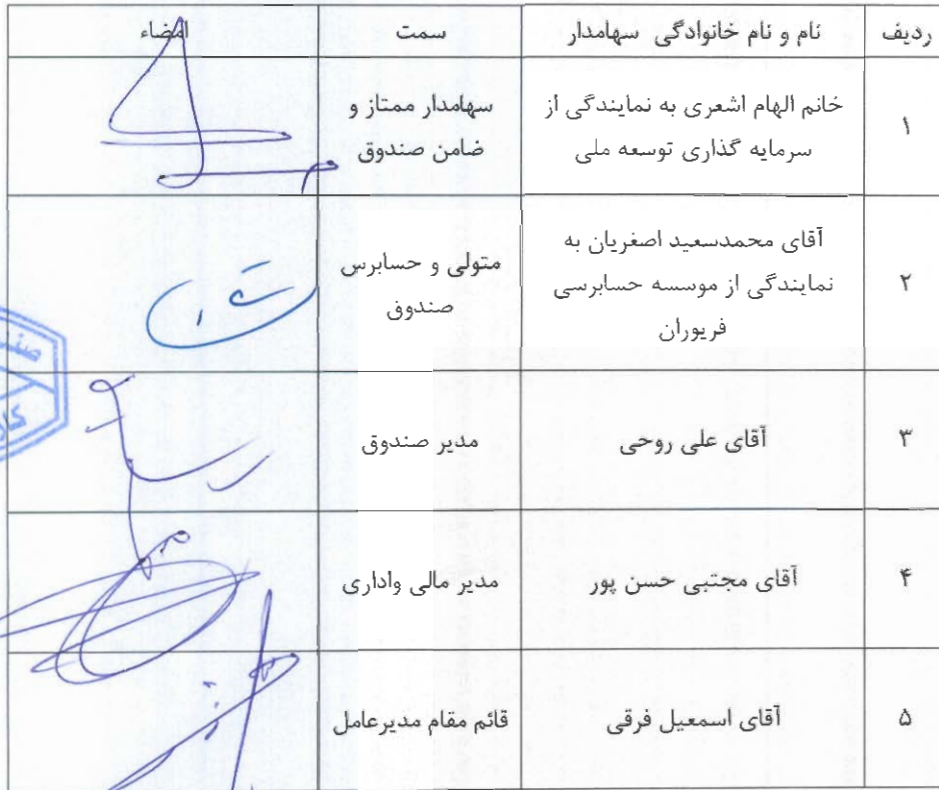 ردیف
نام و نام خانوادگی سهامدار
سمت
امضاء
۱
خانم الهام اشعری به نمایندگی از
سرمایه گذاری توسعه ملی
سهامدار ممتاز و
ضامن صندوق
۲
آقای محمدسعید اصغریان به
نمایندگی از موسسه حسابرسی
فریوران
متولی و حسابرس
صندوق
۳
آقای علی روحی
مدیر صندوق
۴
آقای مجتبی حسن پور
مدیر مالی واداری
۵
آقای اسمعیل فرقی
قائم مقام مدیرعامل